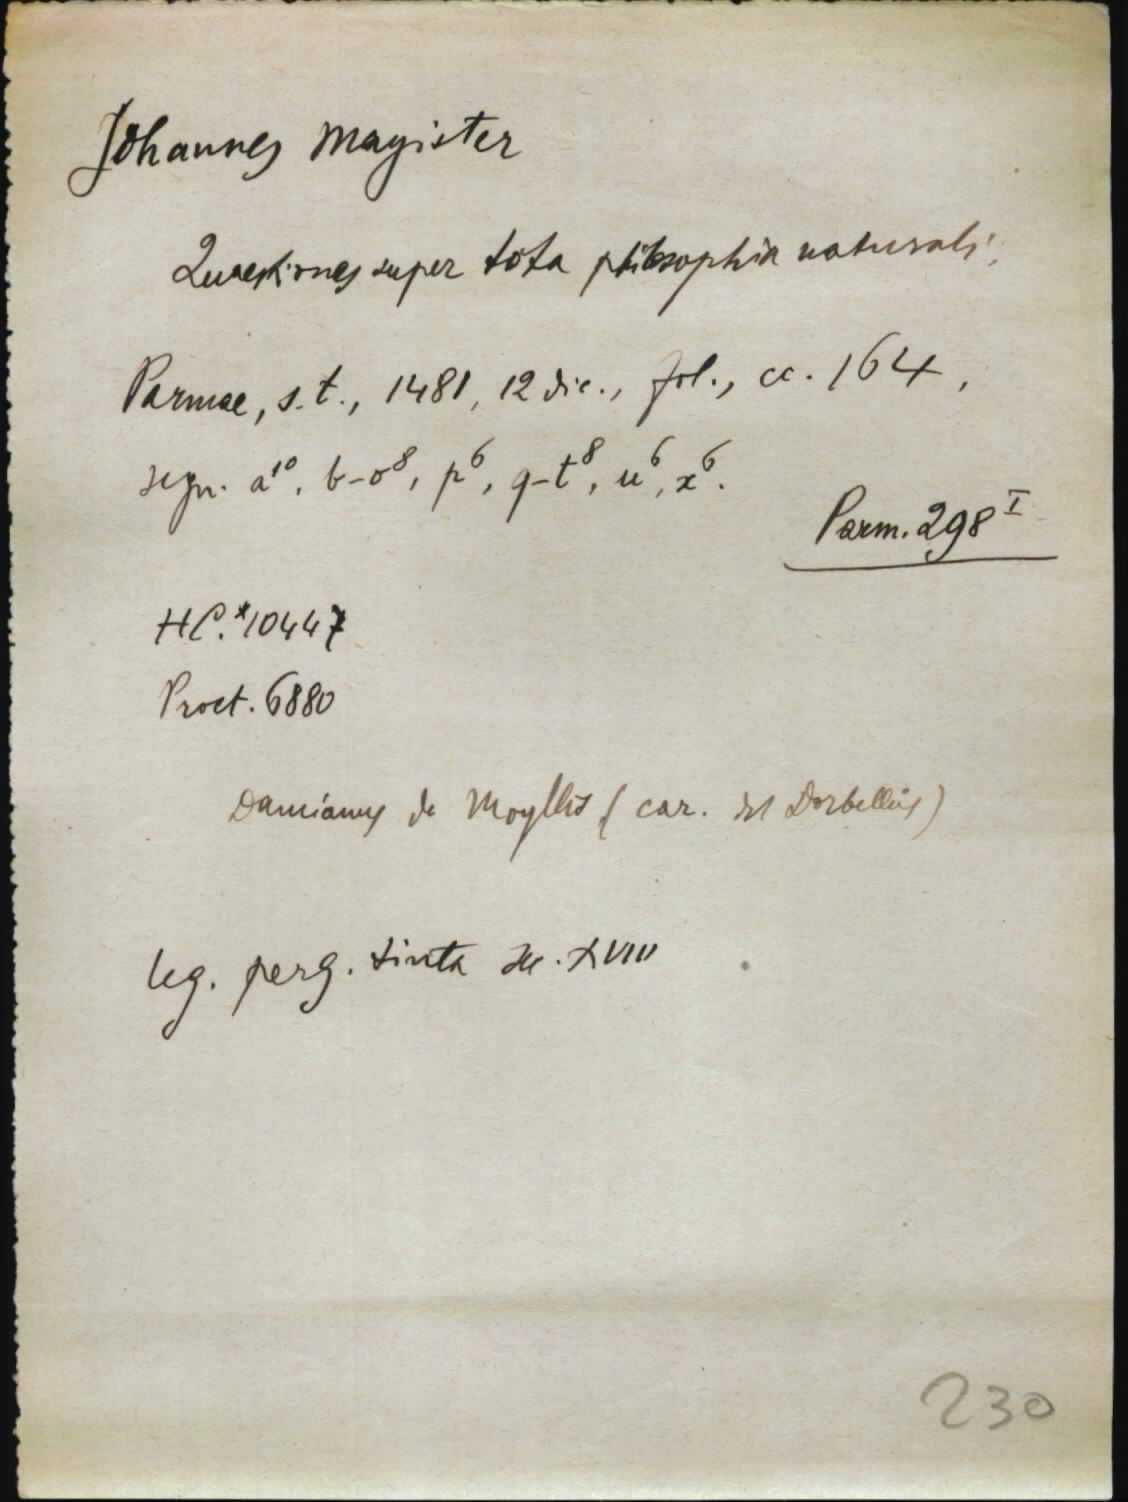 Johannes Magister
Quaestiones super tota philosophia naturali,
Parmae, s.t., 1481, 12 dic., fol., cc. 164,
segn. a¹⁰, b-o⁸, p⁶, q-t⁸, u⁶, x⁶.
Parm. 298ᴵ
HC.*10447
Proct. 6880
Damianus de Moyllis (car. del Dorbellus)
leg. perg. tinta sec. XVIII
230